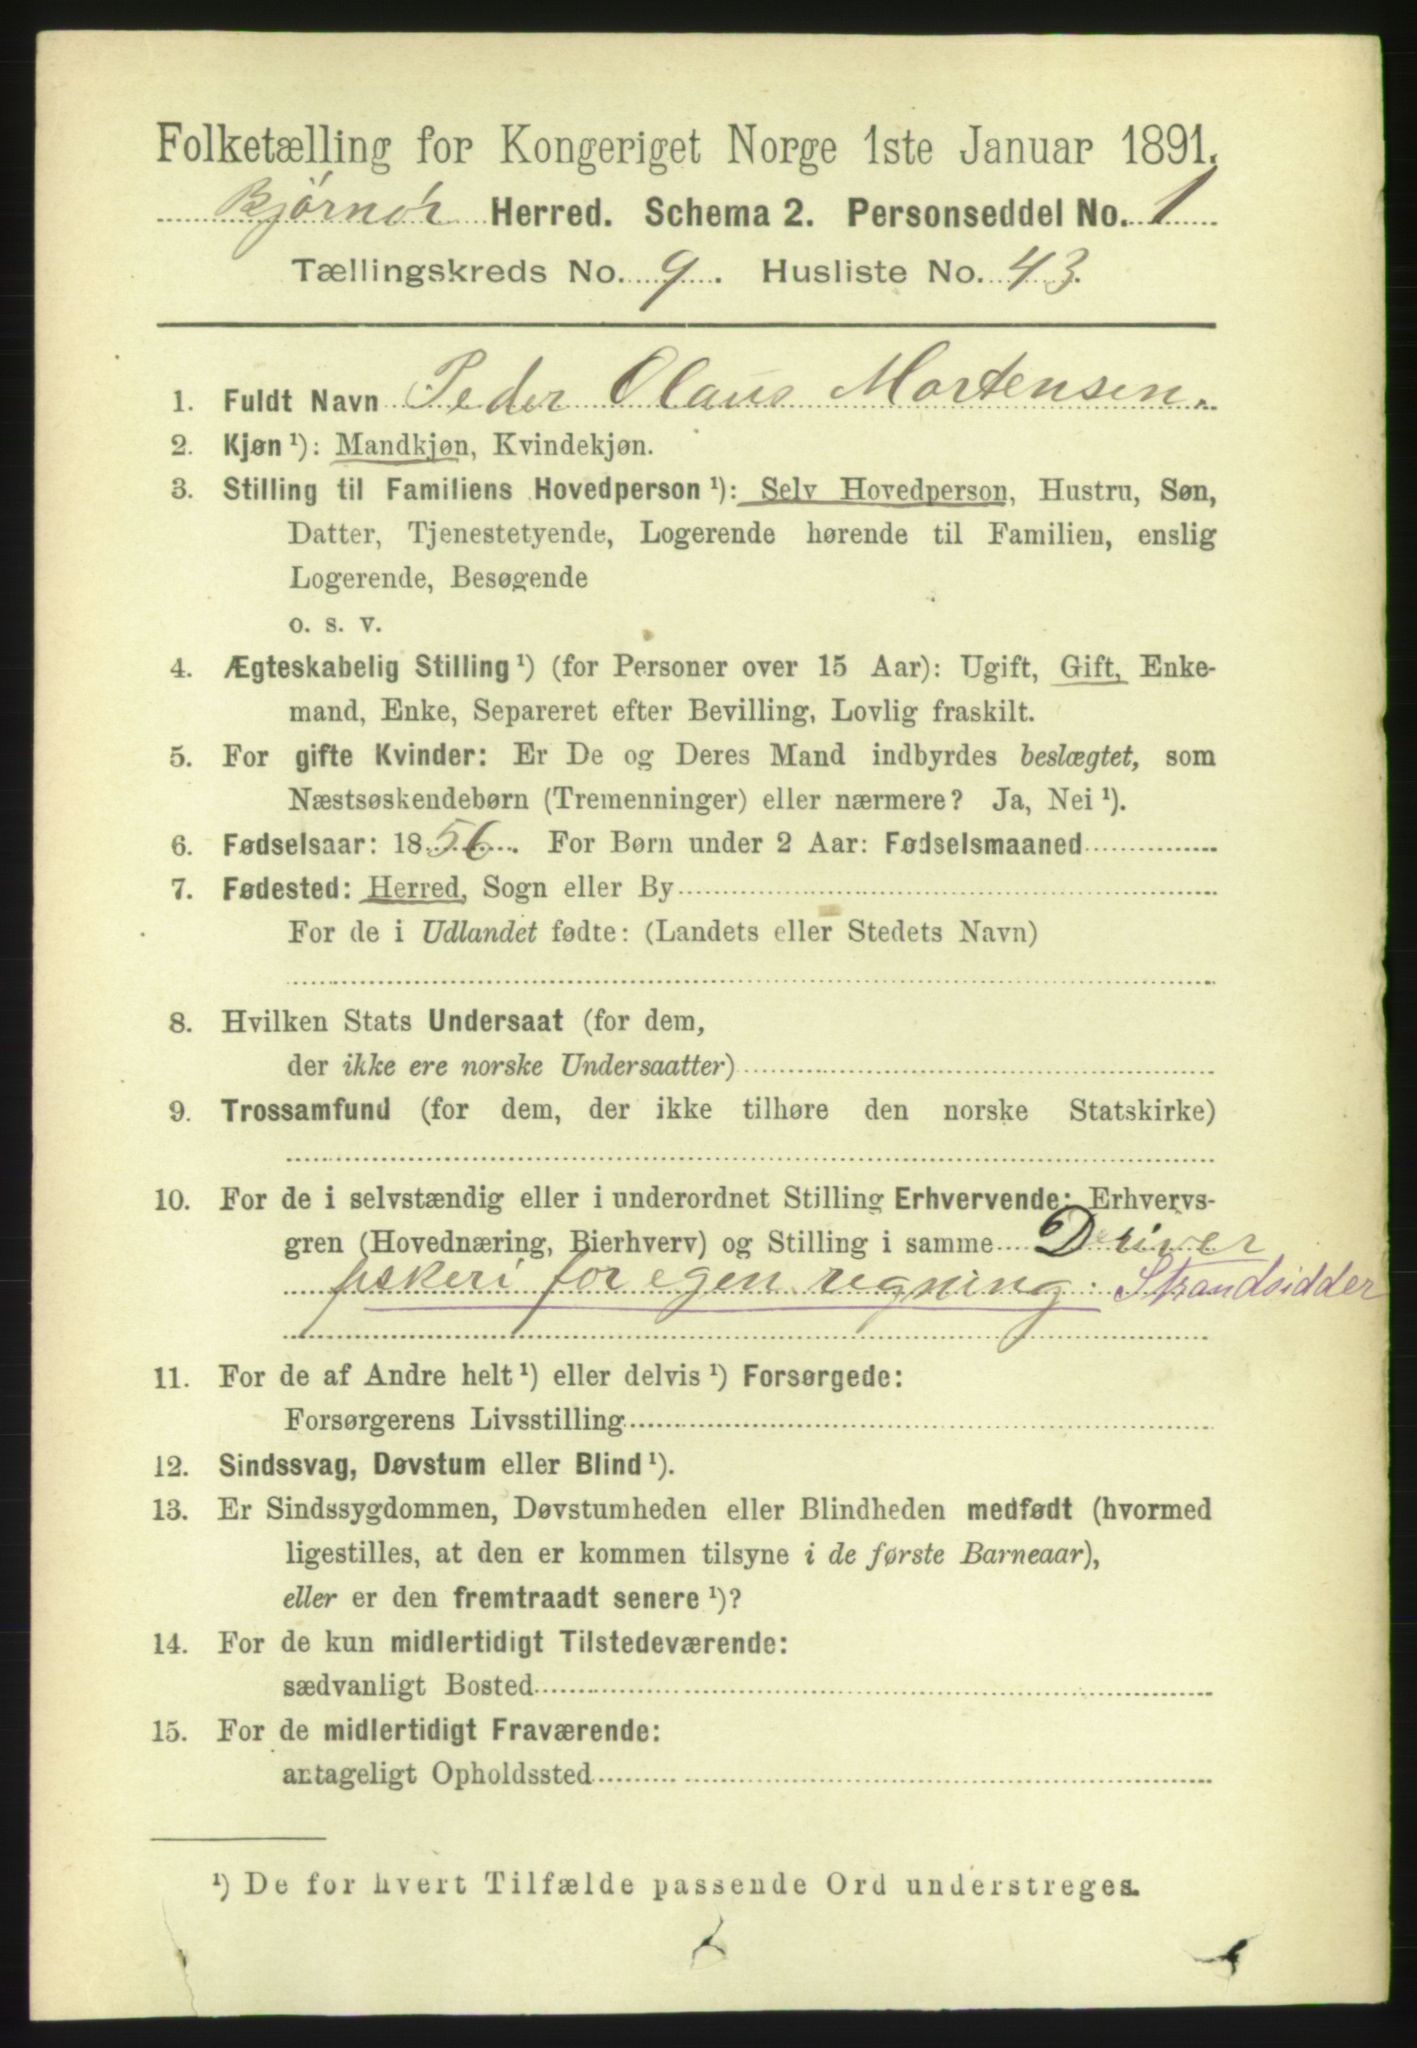 Folketælling for Kongeriget Norge 1ste Januar 1891.
Bjørnør Herred. Schema 2. Personseddel No. 1
Tællingskreds No. 9. Husliste No. 43.
1. Fuldt Navn Peder Olaus Mortensen.
2. Kjøn ¹): Mandkjøn, Kvindekjøn.
3. Stilling til Familiens Hovedperson ¹): Selv Hovedperson, Hustru, Søn,
Datter, Tjenestetyende, Logerende hørende til Familien, enslig
Logerende, Besøgende
o. s. v.
4. Ægteskabelig Stilling ¹) (for Personer over 15 Aar): Ugift, Gift, Enke-
mand, Enke, Separeret efter Bevilling, Lovlig fraskilt.
5. For gifte Kvinder: Er De og Deres Mand indbyrdes beslægtet, som
Næstsøskendebørn (Tremenninger) eller nærmere? Ja, Nei ¹).
6. Fødselsaar: 1856. For Børn under 2 Aar: Fødselsmaaned
7. Fødested: Herred, Sogn eller By
For de i Udlandet fødte: (Landets eller Stedets Navn)
8. Hvilken Stats Undersaat (for dem,
der ikke ere norske Undersaatter)
9. Trossamfund (for dem, der ikke tilhøre den norske Statskirke)
10. For de i selvstændig eller i underordnet Stilling Erhvervende: Erhvervs-
gren (Hovednæring, Bierhverv) og Stilling i samme Driver
fiskeri for egen regning. Strandsidder
11. For de af Andre helt ¹) eller delvis ¹) Forsørgede:
Forsørgerens Livsstilling
12. Sindssvag, Døvstum eller Blind ¹).
13. Er Sindssygdommen, Døvstumheden eller Blindheden medfødt (hvormed
ligestilles, at den er kommen tilsyne i de første Barneaar),
eller er den fremtraadt senere ¹)?
14. For de kun midlertidigt Tilstedeværende:
sædvanligt Bosted
15. For de midlertidigt Fraværende:
antageligt Opholdssted
¹) De for hvert Tilfælde passende Ord understreges.